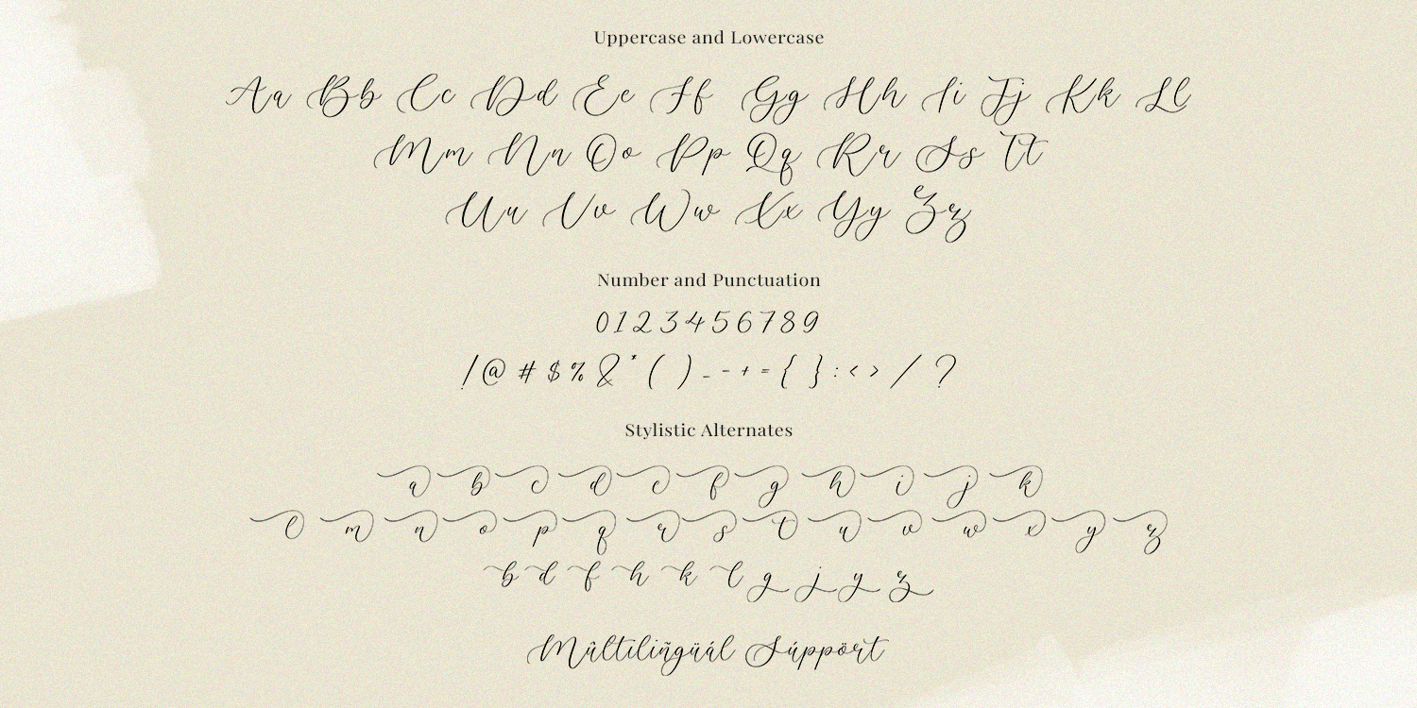 Uppercase and Lowercase
Aa Bb Cc Dd Ee Ff Gg Hh Ii Jj Kk Ll
Mm Nn Oo Pp Qq Rr Ss Tt
Uu Vv Ww Xx Yy Zz
Number and Punctuation
0 1 2 3 4 5 6 7 8 9
! @ # $ % & * ( ) _ - + = { } : < > / ?
Stylistic Alternates
a b c d e f g h i j k
l m n o p q r s t u v w x y z
b d f h k l g j y z
Mûltiliñgüál Súppört